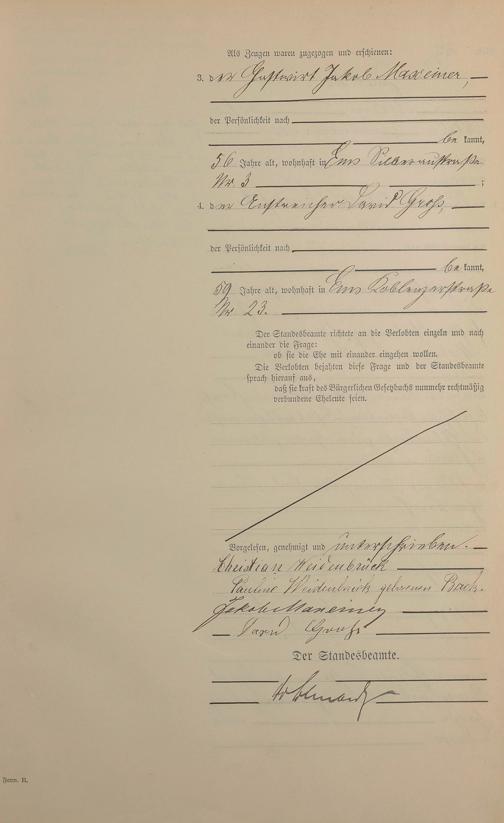 Als Zeugen waren zugezogen und erschienen:
3. der Gastwirt Jakob Maxeiner,
der Persönlichkeit nach
be kannt,
56 Jahre alt, wohnhaft in Ems Silberaustraße
Nr 3 ;
4. der David Groß,
der Persönlichkeit nach
be kannt,
59 Jahre alt, wohnhaft in Ems Koblenzerstraße
Nr 23.
Der Standesbeamte richtete an die Verlobten einzeln und nach
einander die Frage:
ob sie die Ehe mit einander eingehen wollen.
Die Verlobten bejahten diese Frage und der Standesbeamte
sprach hierauf aus,
daß sie kraft des Bürgerlichen Gesetzbuchs nunmehr rechtmäßig
verbundene Eheleute seien.
Vorgelesen, genehmigt und unterschrieben.
Christian Weidenbrück
Pauline Weidenbrück geborenen Bach.
Jakob Maxeiner
David Groß
Der Standesbeamte.
Form. B.